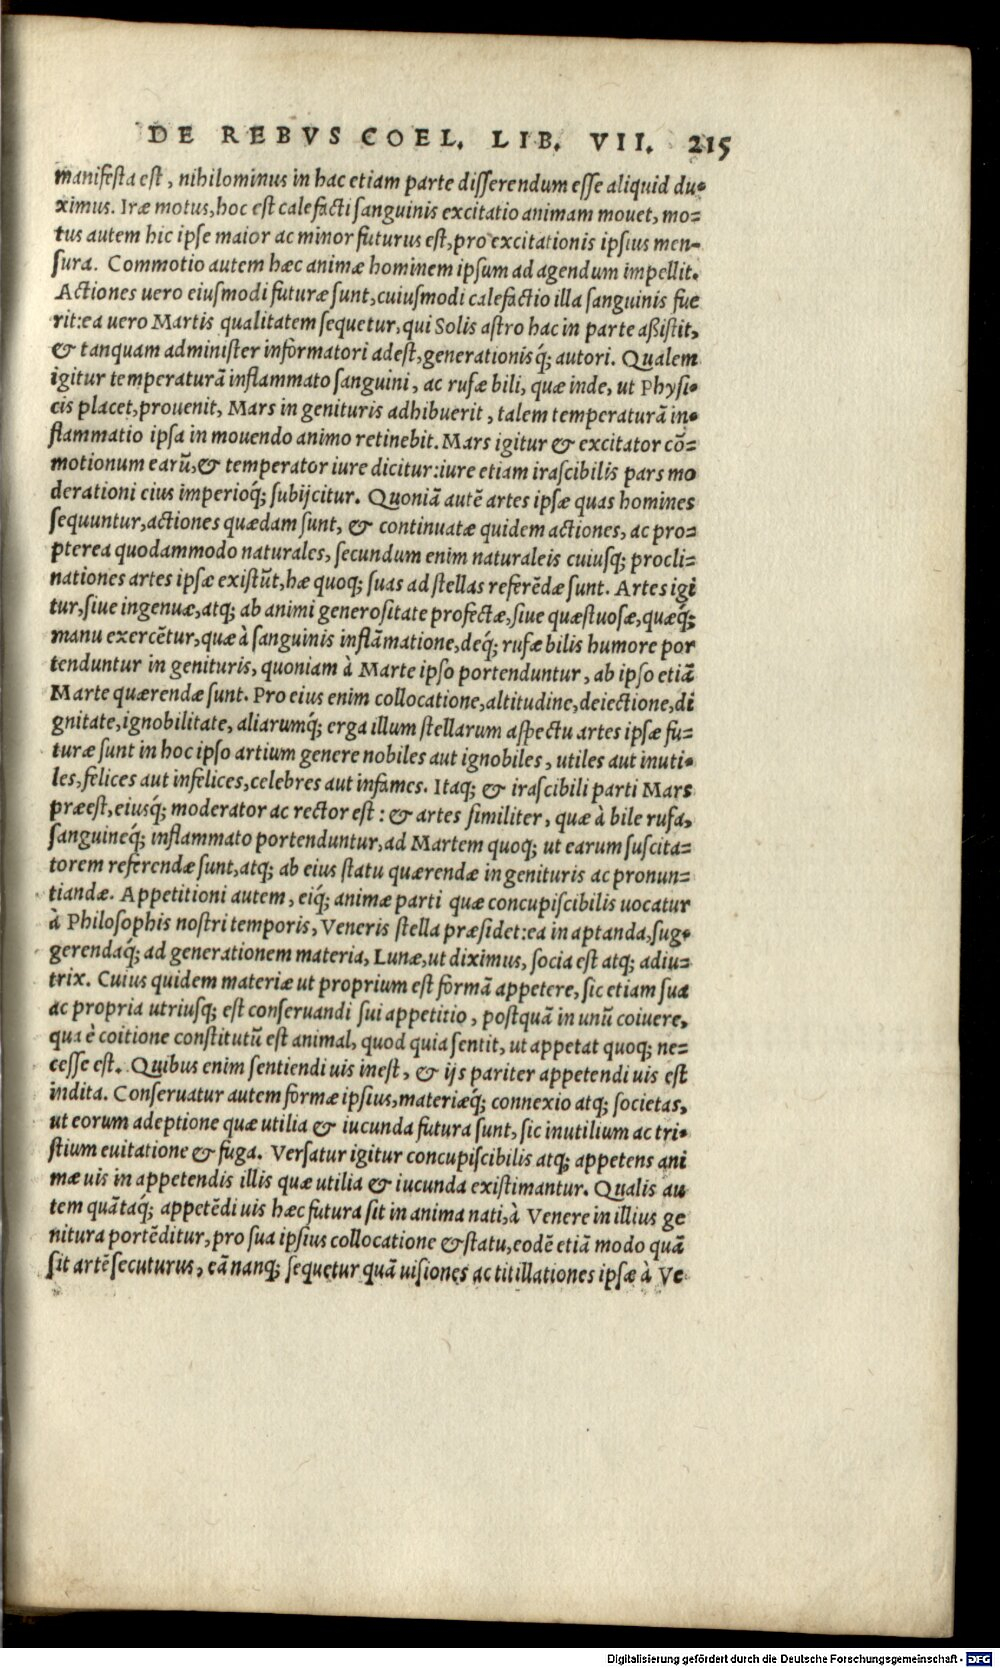 DE REBVS COEL. LIB. VII. 215
manifesta est, nihilominus in hac etiam parte disserendum esse aliquid du-
ximus. Iræ motus, hoc est calefacti sanguinis excitatio animam mouet, mo-
tus autem hic ipse maior ac minor futurus est, pro excitationis ipsius men-
sura. Commotio autem hæc animæ hominem ipsum ad agendum impellit.
Actiones uero eiusmodi futuræ sunt, cuiusmodi calefactio illa sanguinis fue
rit: ea uero Martis qualitatem sequetur, qui Solis astro hac in parte aßistit,
& tanquam administer informatori adest, generationisq́; autori. Qualem
igitur temperaturā inflammato sanguini, ac rufæ bili, quæ inde, ut Physi-
cis placet, prouenit, Mars in genituris adhibuerit, talem temperaturā in-
flammatio ipsa in mouendo animo retinebit. Mars igitur & excitator cō-
motionum earū, & temperator iure dicitur: iure etiam irascibilis pars mo
derationi eius imperioq́; subijcitur. Quoniā autē artes ipsæ quas homines
sequuntur, actiones quædam sunt, & continuatæ quidem actiones, ac pro-
pterea quodammodo naturales, secundum enim naturaleis cuiusq; procli-
nationes artes ipsæ existūt, hæ quoq; suas ad stellas referēdæ sunt. Artes igi
tur, siue ingenuæ, atq; ab animi generositate profectæ, siue quæstuosæ, quæq́;
manu exercētur, quæ à sanguinis inflāmatione, deq́; rufæ bilis humore por
tenduntur in genituris, quoniam à Marte ipso portenduntur, ab ipso etiā
Marte quærendæ sunt. Pro eius enim collocatione, altitudine, deiectione, di
gnitate, ignobilitate, aliarumq́; erga illum stellarum aspectu artes ipsæ fu-
turæ sunt in hoc ipso artium genere nobiles aut ignobiles, utiles aut inuti-
les, felices aut infelices, celebres aut infames. Itaq; & irascibili parti Mars
præest, eiusq́; moderator ac rector est: & artes similiter, quæ à bile rufa,
sanguineq́; inflammato portenduntur, ad Martem quoq; ut earum suscita-
torem referendæ sunt, atq; ab eius statu quærendæ in genituris ac pronun-
tiandæ. Appetitioni autem, eiq́; animæ parti quæ concupiscibilis uocatur
à Philosophis nostri temporis, Veneris stella præsidet: ea in aptanda, sug-
gerendaq́; ad generationem materia, Lunæ, ut diximus, socia est atq; adiu-
trix. Cuius quidem materiæ ut proprium est formā appetere, sic etiam sua
ac propria utriusq; est conseruandi sui appetitio, postquā in unū coiuere,
qua è coitione constitutū est animal, quod quia sentit, ut appetat quoq; ne-
cesse est. Quibus enim sentiendi uis inest, & ijs pariter appetendi uis est
indita. Conseruatur autem formæ ipsius, materiæq́; connexio atq; societas,
ut eorum adeptione quæ utilia & iucunda futura sunt, sic inutilium ac tri-
stium euitatione & fuga. Versatur igitur concupiscibilis atq; appetens ani
mæ uis in appetendis illis quæ utilia & iucunda existimantur. Qualis au
tem quātaq́; appetēdi uis hæc futura sit in anima nati, à Venere in illius ge
nitura portēditur, pro sua ipsius collocatione & statu, eodē etiā modo quā
sit artē secuturus, eā nanq; sequetur quā uisiones ac titillationes ipsæ à Ve
Digitalisierung gefördert durch die Deutsche Forschungsgemeinschaft - DFG